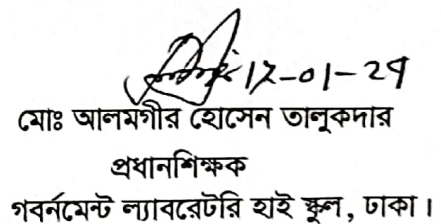 12-01-29
মোঃ আলমগীর হোসেন তালুকদার
প্রধানশিক্ষক
গবর্নমেন্ট ল্যাবরেটরি হাই স্কুল, ঢাকা।